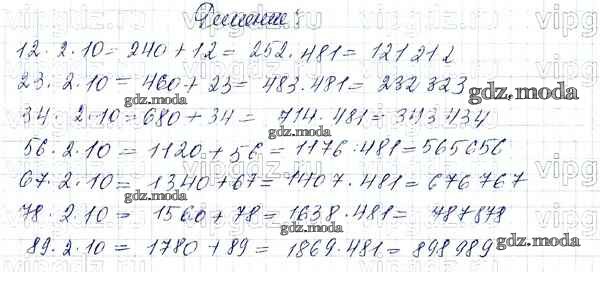 Решение:
12 · 2 · 10 = 240 + 12 = 252 · 481 = 121212
23 · 2 · 10 = 460 + 23 = 483 · 481 = 232323
34 · 2 · 10 = 680 + 34 = 714 · 481 = 343434
56 · 2 · 10 = 1120 + 56 = 1176 · 481 = 565656
67 · 2 · 10 = 1340 + 67 = 1407 · 481 = 676767
78 · 2 · 10 = 1560 + 78 = 1638 · 481 = 787878
89 · 2 · 10 = 1780 + 89 = 1869 · 481 = 898989
gdz.moda
gdz.moda
gdz.moda
gdz.moda
gdz.moda
gdz.moda